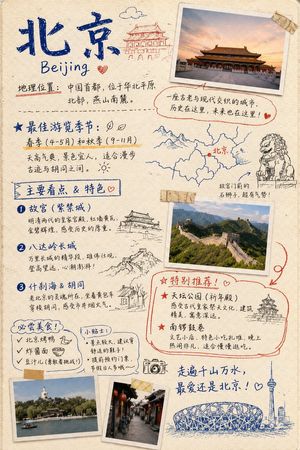 北京
Beijing
地理位置：中国首都，位于华北平原
北部，燕山南麓。
一座古老与现代交织的城市，
历史在这里，未来也在这里！
★最佳游览季节：
春季（4-5月）和秋季（9-11月）
天高气爽，景色宜人，适合漫步
古迹与胡同之间。
北京
故宫门前的
石狮子，超有气势！
主要看点 & 特色
① 故宫（紫禁城）
明清两代的皇家宫殿，红墙黄瓦，
金碧辉煌，感受历史的厚重。
② 八达岭长城
万里长城的精华段，雄伟壮观，
登高望远，心潮澎湃！
③ 什刹海 & 胡同
老北京的灵魂所在，坐着黄包车
穿梭胡同，感受市井烟火气。
特别推荐！
★ 天坛公园（祈年殿）
感受古代皇家祭天文化，建筑
精美，寓意深远。
★ 南锣鼓巷
文艺小店，特色小吃扎堆，晚上
热闹非凡，适合慢慢逛吃。
必尝美食！
✓ 北京烤鸭
✓ 炸酱面
✓ 豆汁儿（勇敢者挑战！）
小贴士：
景点较大，建议穿
舒适的鞋子！
提前预约门票，
节假日人多哦～
走遍千山万水，
最爱还是北京！